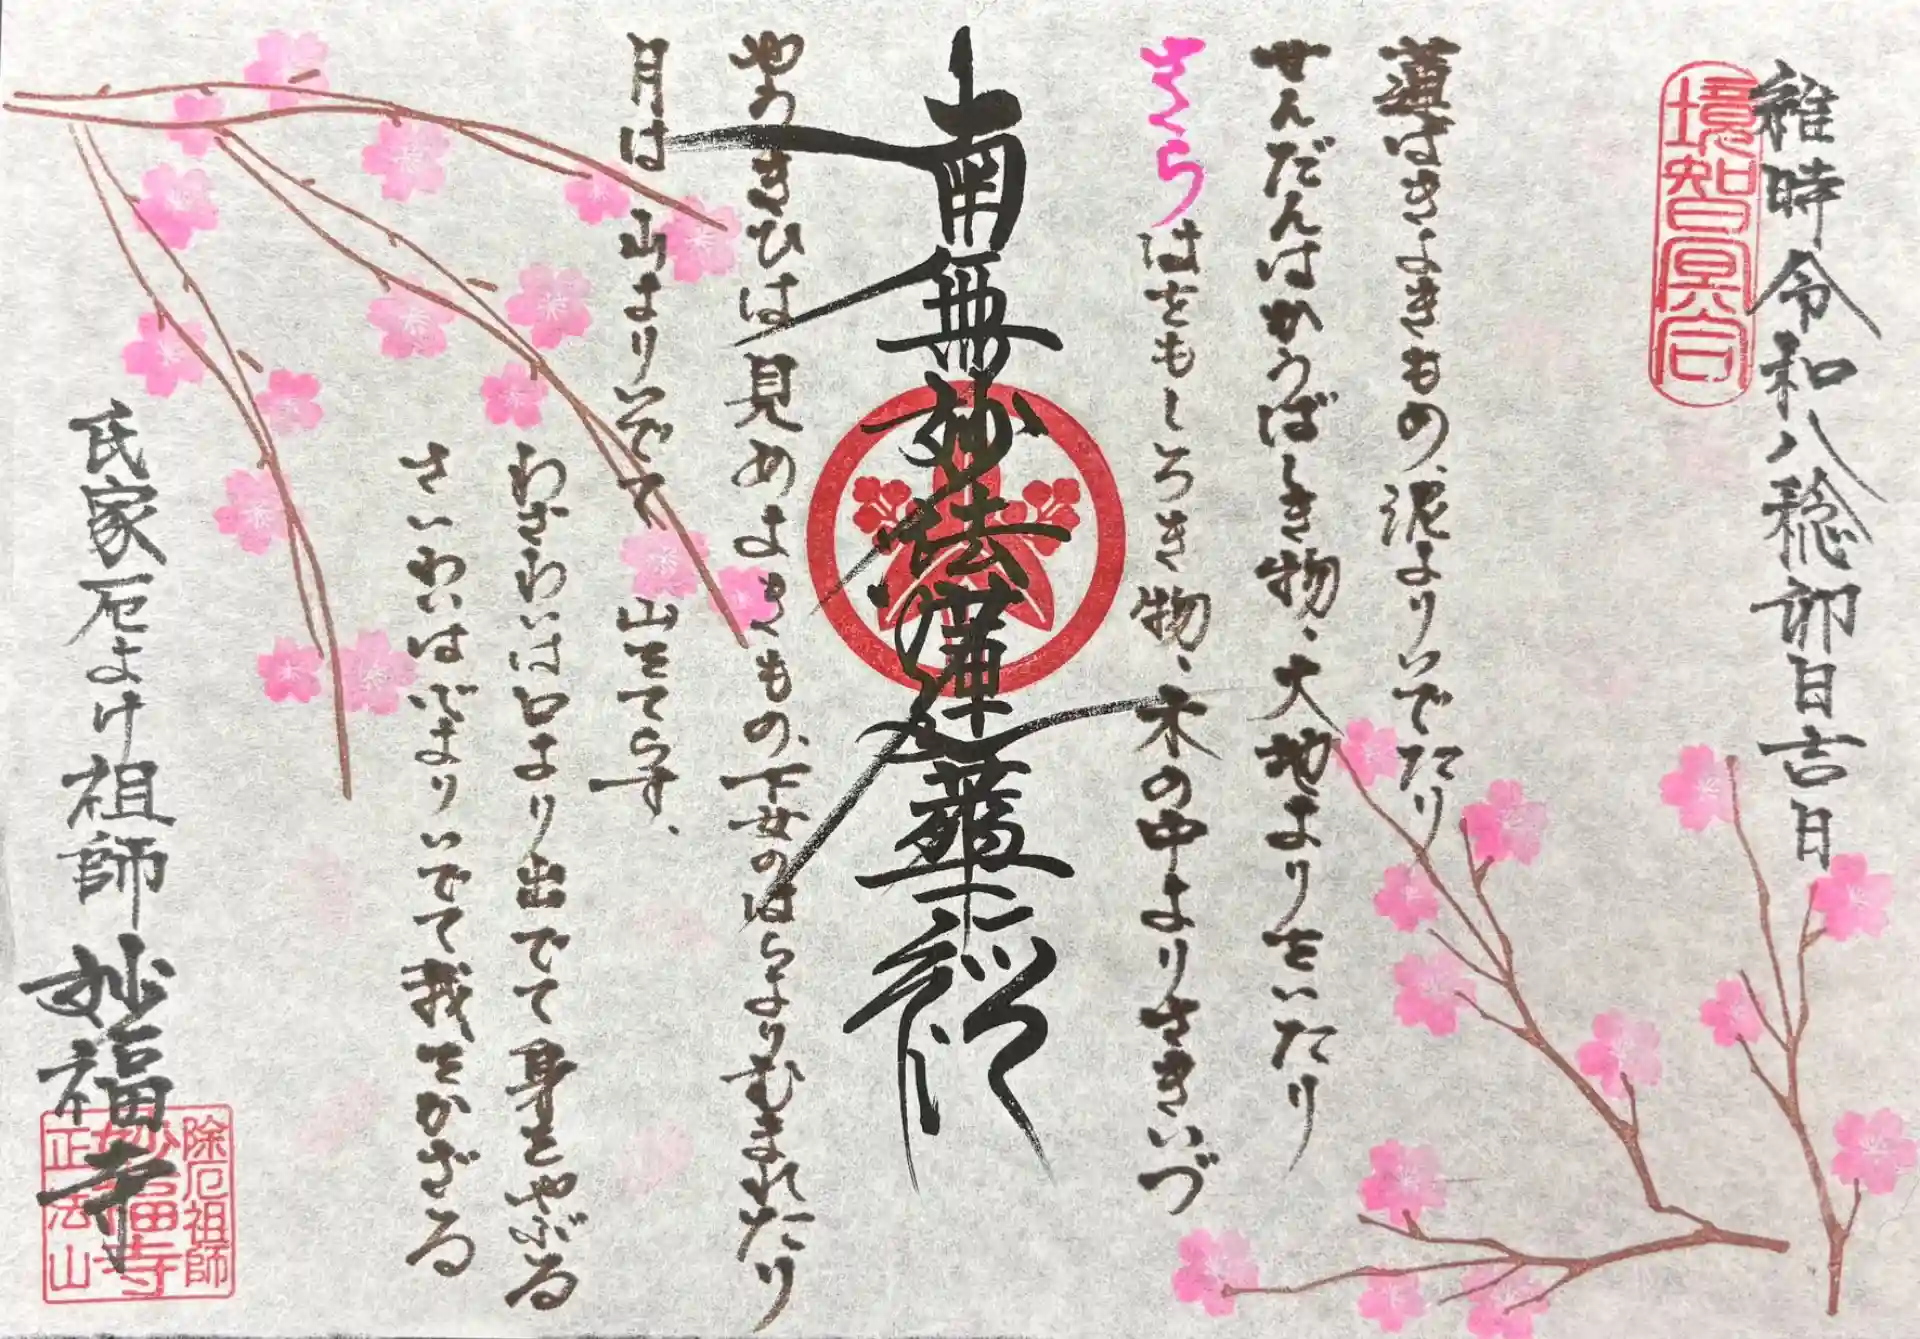 維時令和八稔卯月吉日
境智冥合
蓮はきよきもの、泥よりいでたり
せんだんはかうばしき物、大地よりをいたり
さくらはをもしろき物、木の中よりさきいづ
南無妙法蓮華経
やうきひは見めよきもの、下女のはらよりむまれたり
月は山よりいでて山をてらす、
わざわいは口より出でて身をやぶる
さいわいは心よりいでて我をかざる
氏家厄よけ祖師 妙福寺
除厄祖師
妙福寺
正法山